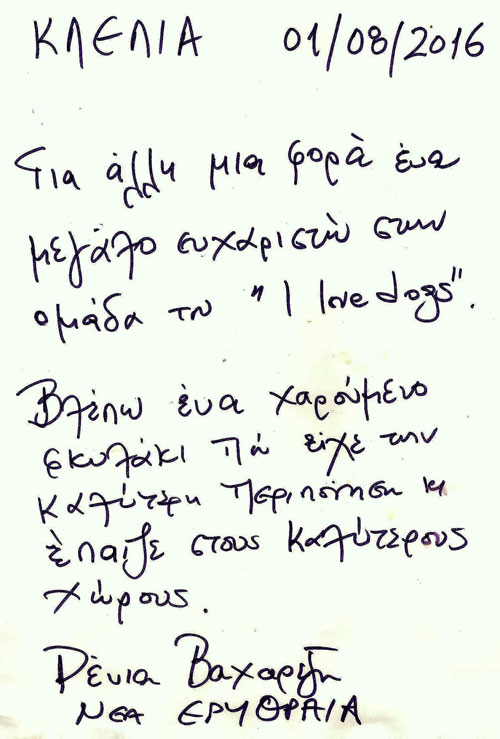 ΚΛΕΛΙΑ 01/08/2016
Για άλλη μια φορά ένα
μεγάλο ευχαριστώ στην
ομάδα του "I love dogs".
Βλέπω ένα χαρούμενο
σκυλάκι που είχε την
καλύτερη περιποίηση κ
έπαιξε στους καλύτερους
χώρους.
Ρένια
ΝΕΑ ΕΡΥΘΡΑΙΑ